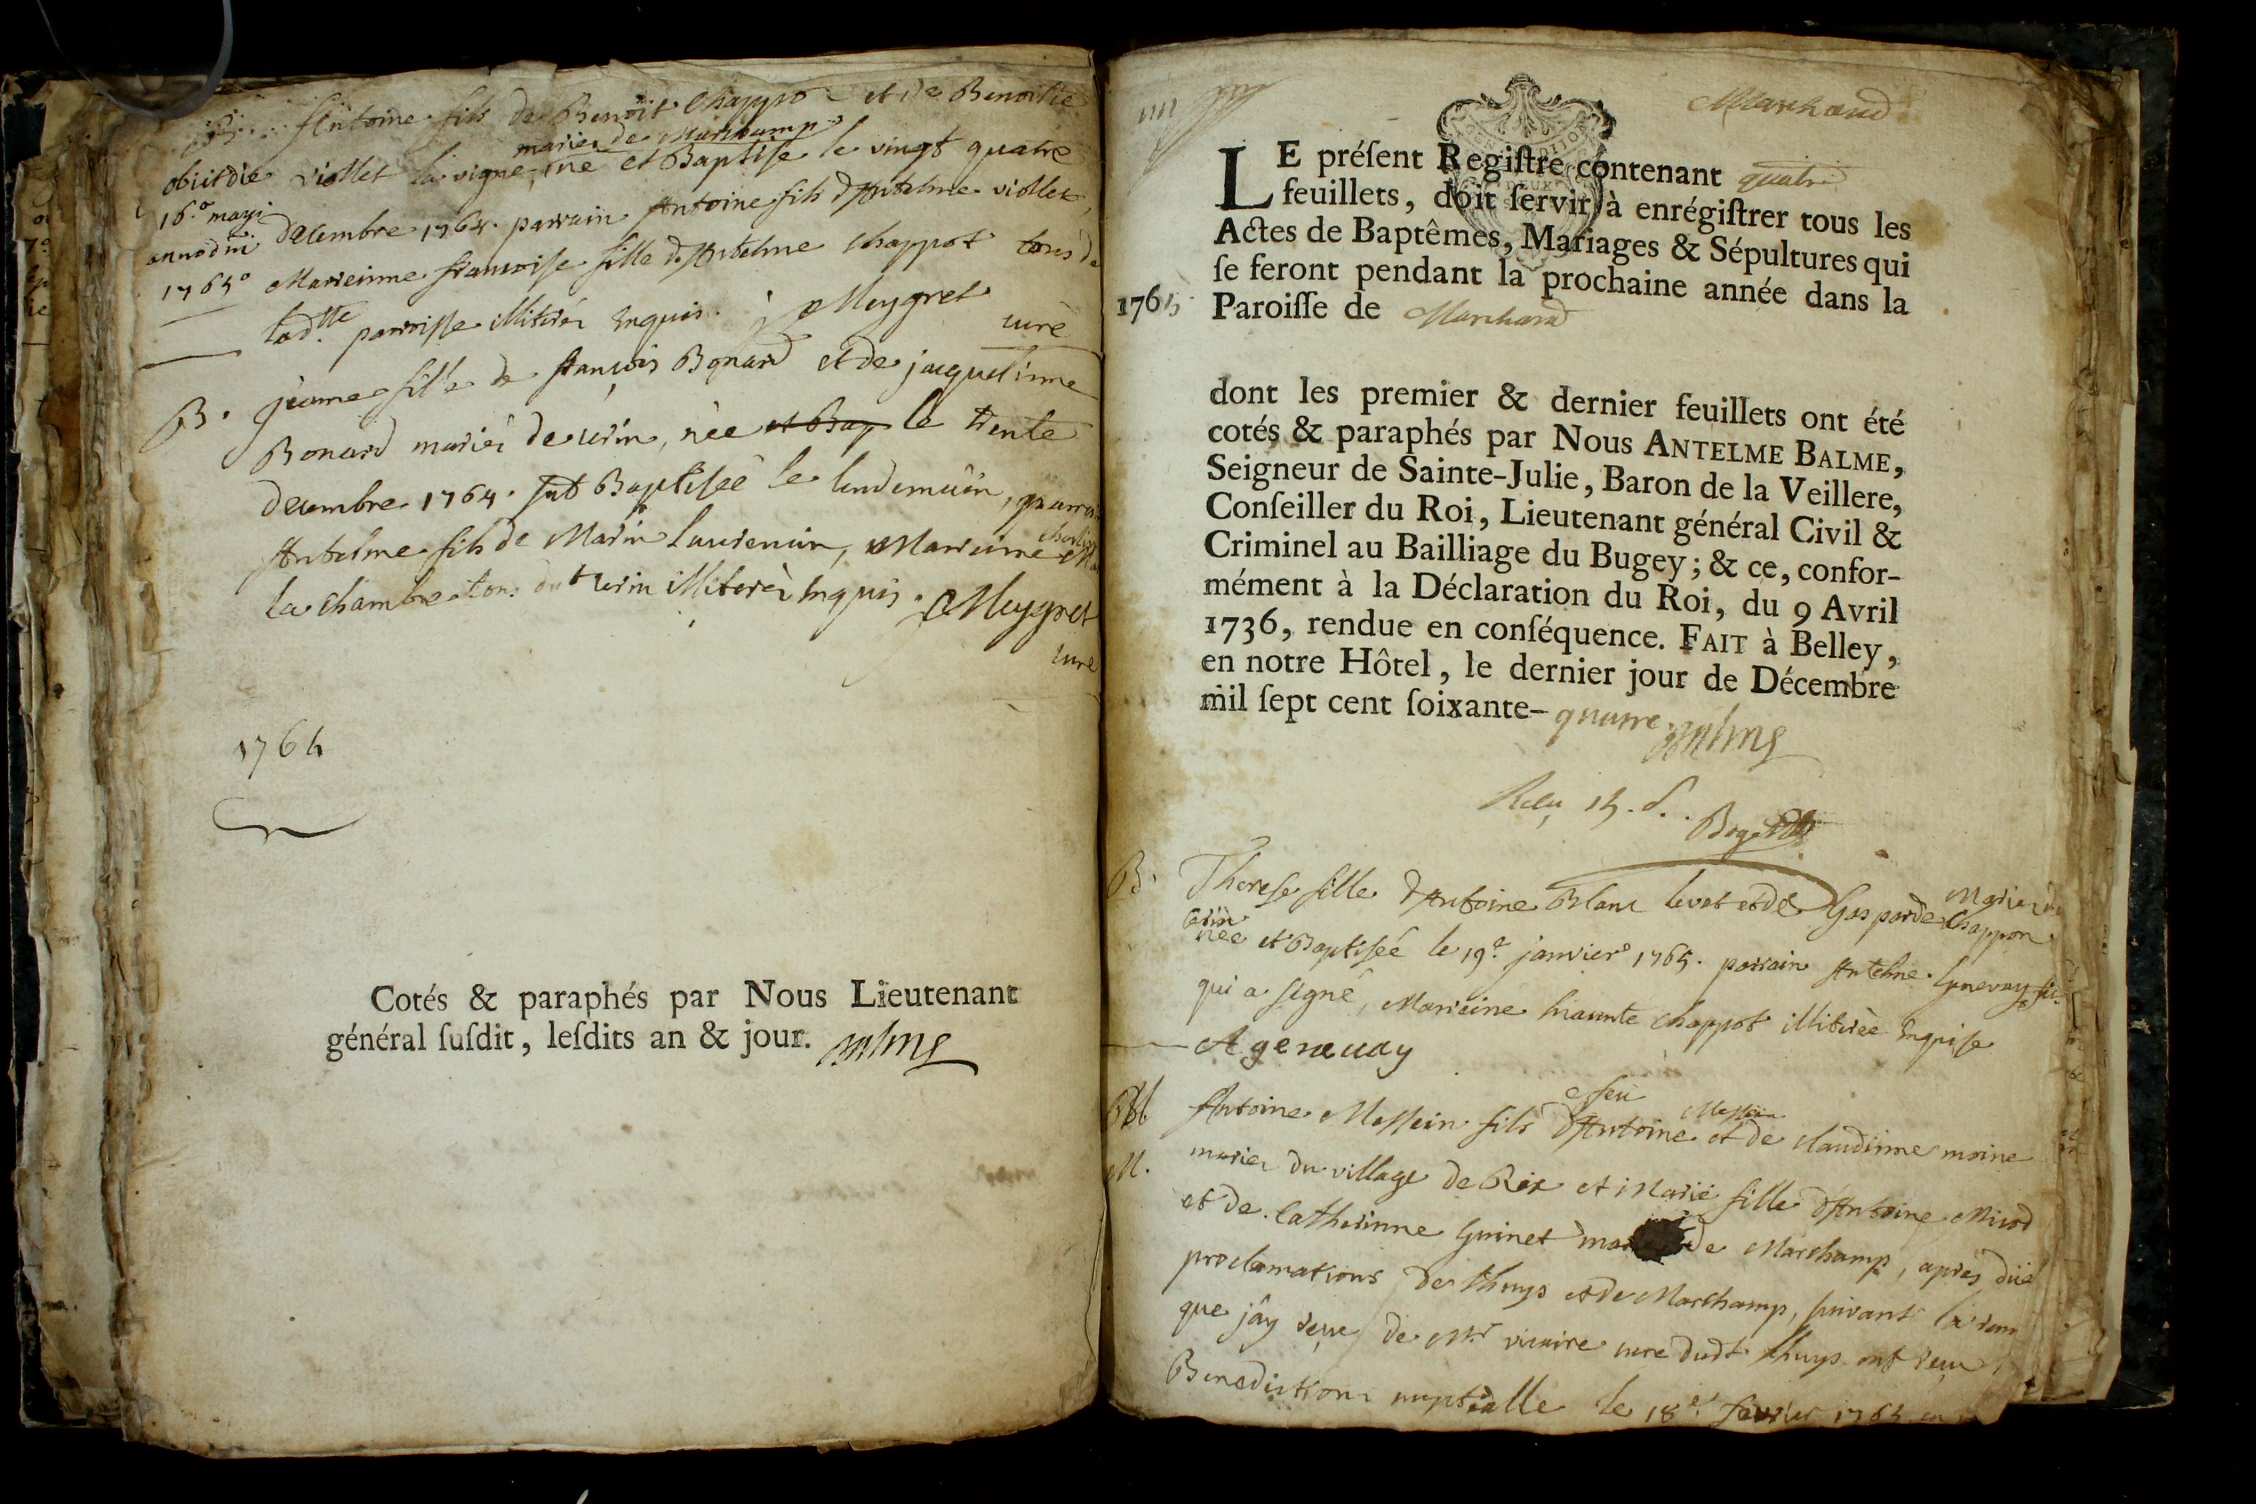 Antoine fils de Benoit Chappo et de Benoitte
mariés de Marchamp
obiit die viollet la vigne, né et Baptisé le vingt quatre
16.º maÿ
anno dni decembre 1764. parrain Antoine fils d'Antelme viollet,
1765º Marreinne francoise fille d'Antelme Chappot tous de
lad.tte parroisse illiterés Enquis. J Meygret
curé
B. jeanne fille de francois Bonard et de jacquelinne
Bonard mariés de cerin, née et Bap le trente
decembre 1764. fut Baptisée le lendemain, parrai
Antelme fils de Marin Laurencin, Marreine
la chambe tous dud.t cerin illiterés Enquis. Meygret
curé
1764
Cotés & paraphés par Nous Lieutenant
général ſuſdit, leſdits an & jour. Balme
Marchand
LE préſent Regiſtre contenant quatre
feuillets, doit ſervir à enrégiſtrer tous les
Actes de Baptêmes, Mariages & Sépultures qui
ſe feront pendant la prochaine année dans la
1765 Paroiſſe de Marchand
dont les premier & dernier feuillets ont été
cotés & paraphés par Nous ANTELME BALME,
Seigneur de Sainte-Julie, Baron de la Veillere,
Conſeiller du Roi, Lieutenant général Civil &
Criminel au Bailliage du Bugey; & ce, confor-
mément à la Déclaration du Roi, du 9 Avril
1736, rendue en conſéquence. FAIT à Belley,
en notre Hôtel, le dernier jour de Décembre
mil ſept cent ſoixante-quatre. Balme
Reçu 15. d.
B. Therese fille d'Antoine Blanc levet et de Gasparde Chappon
Mariés de
cerin
née et Baptisée le 19.e janvier 1765. parrain Antelme Genevay
qui a signé, Marreine Chappot illiterée Enquise
A genevay
Antoine Messein fils d'Antoine et de claudinne moine
feu Messein
M. mariés du village de Rix et Marie fille d'Antoine Micod
et de Catherinne Guinet de Marchamp, après düe
proclamations de Lhuys et de Marchamp, suivant la rem
que j'ay reçue de Mr vicaire curé dudt Lhuys ont reçu
Benediction nuptialle le 18.e fevrier 1765